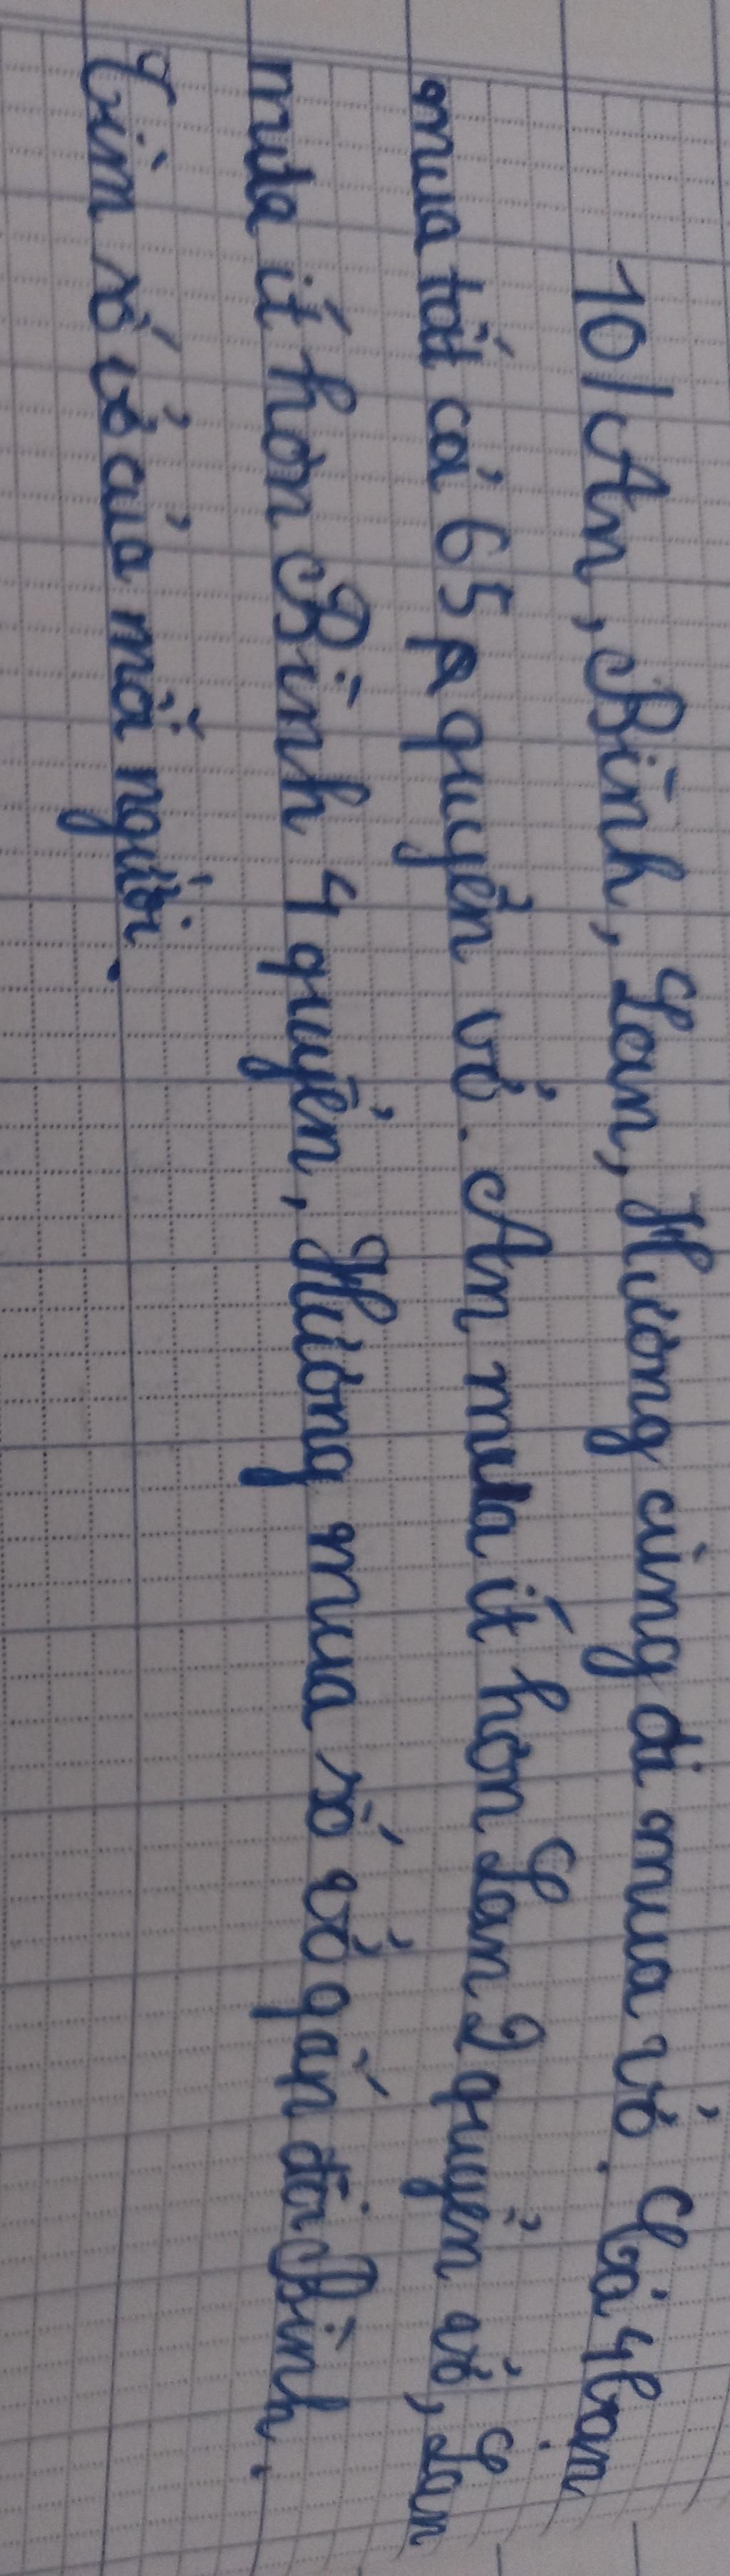 10/ An, Bình, Lan, Hương cùng đi mua vở. Cả 4 bạn
mua tất cả 65 quyển vở. An mua ít hơn Lan 2 quyển vở, Lan
mua ít hơn Bình 4 quyển, Hương mua số vở gấp đôi Bình.
Tìm số vở của mỗi người.